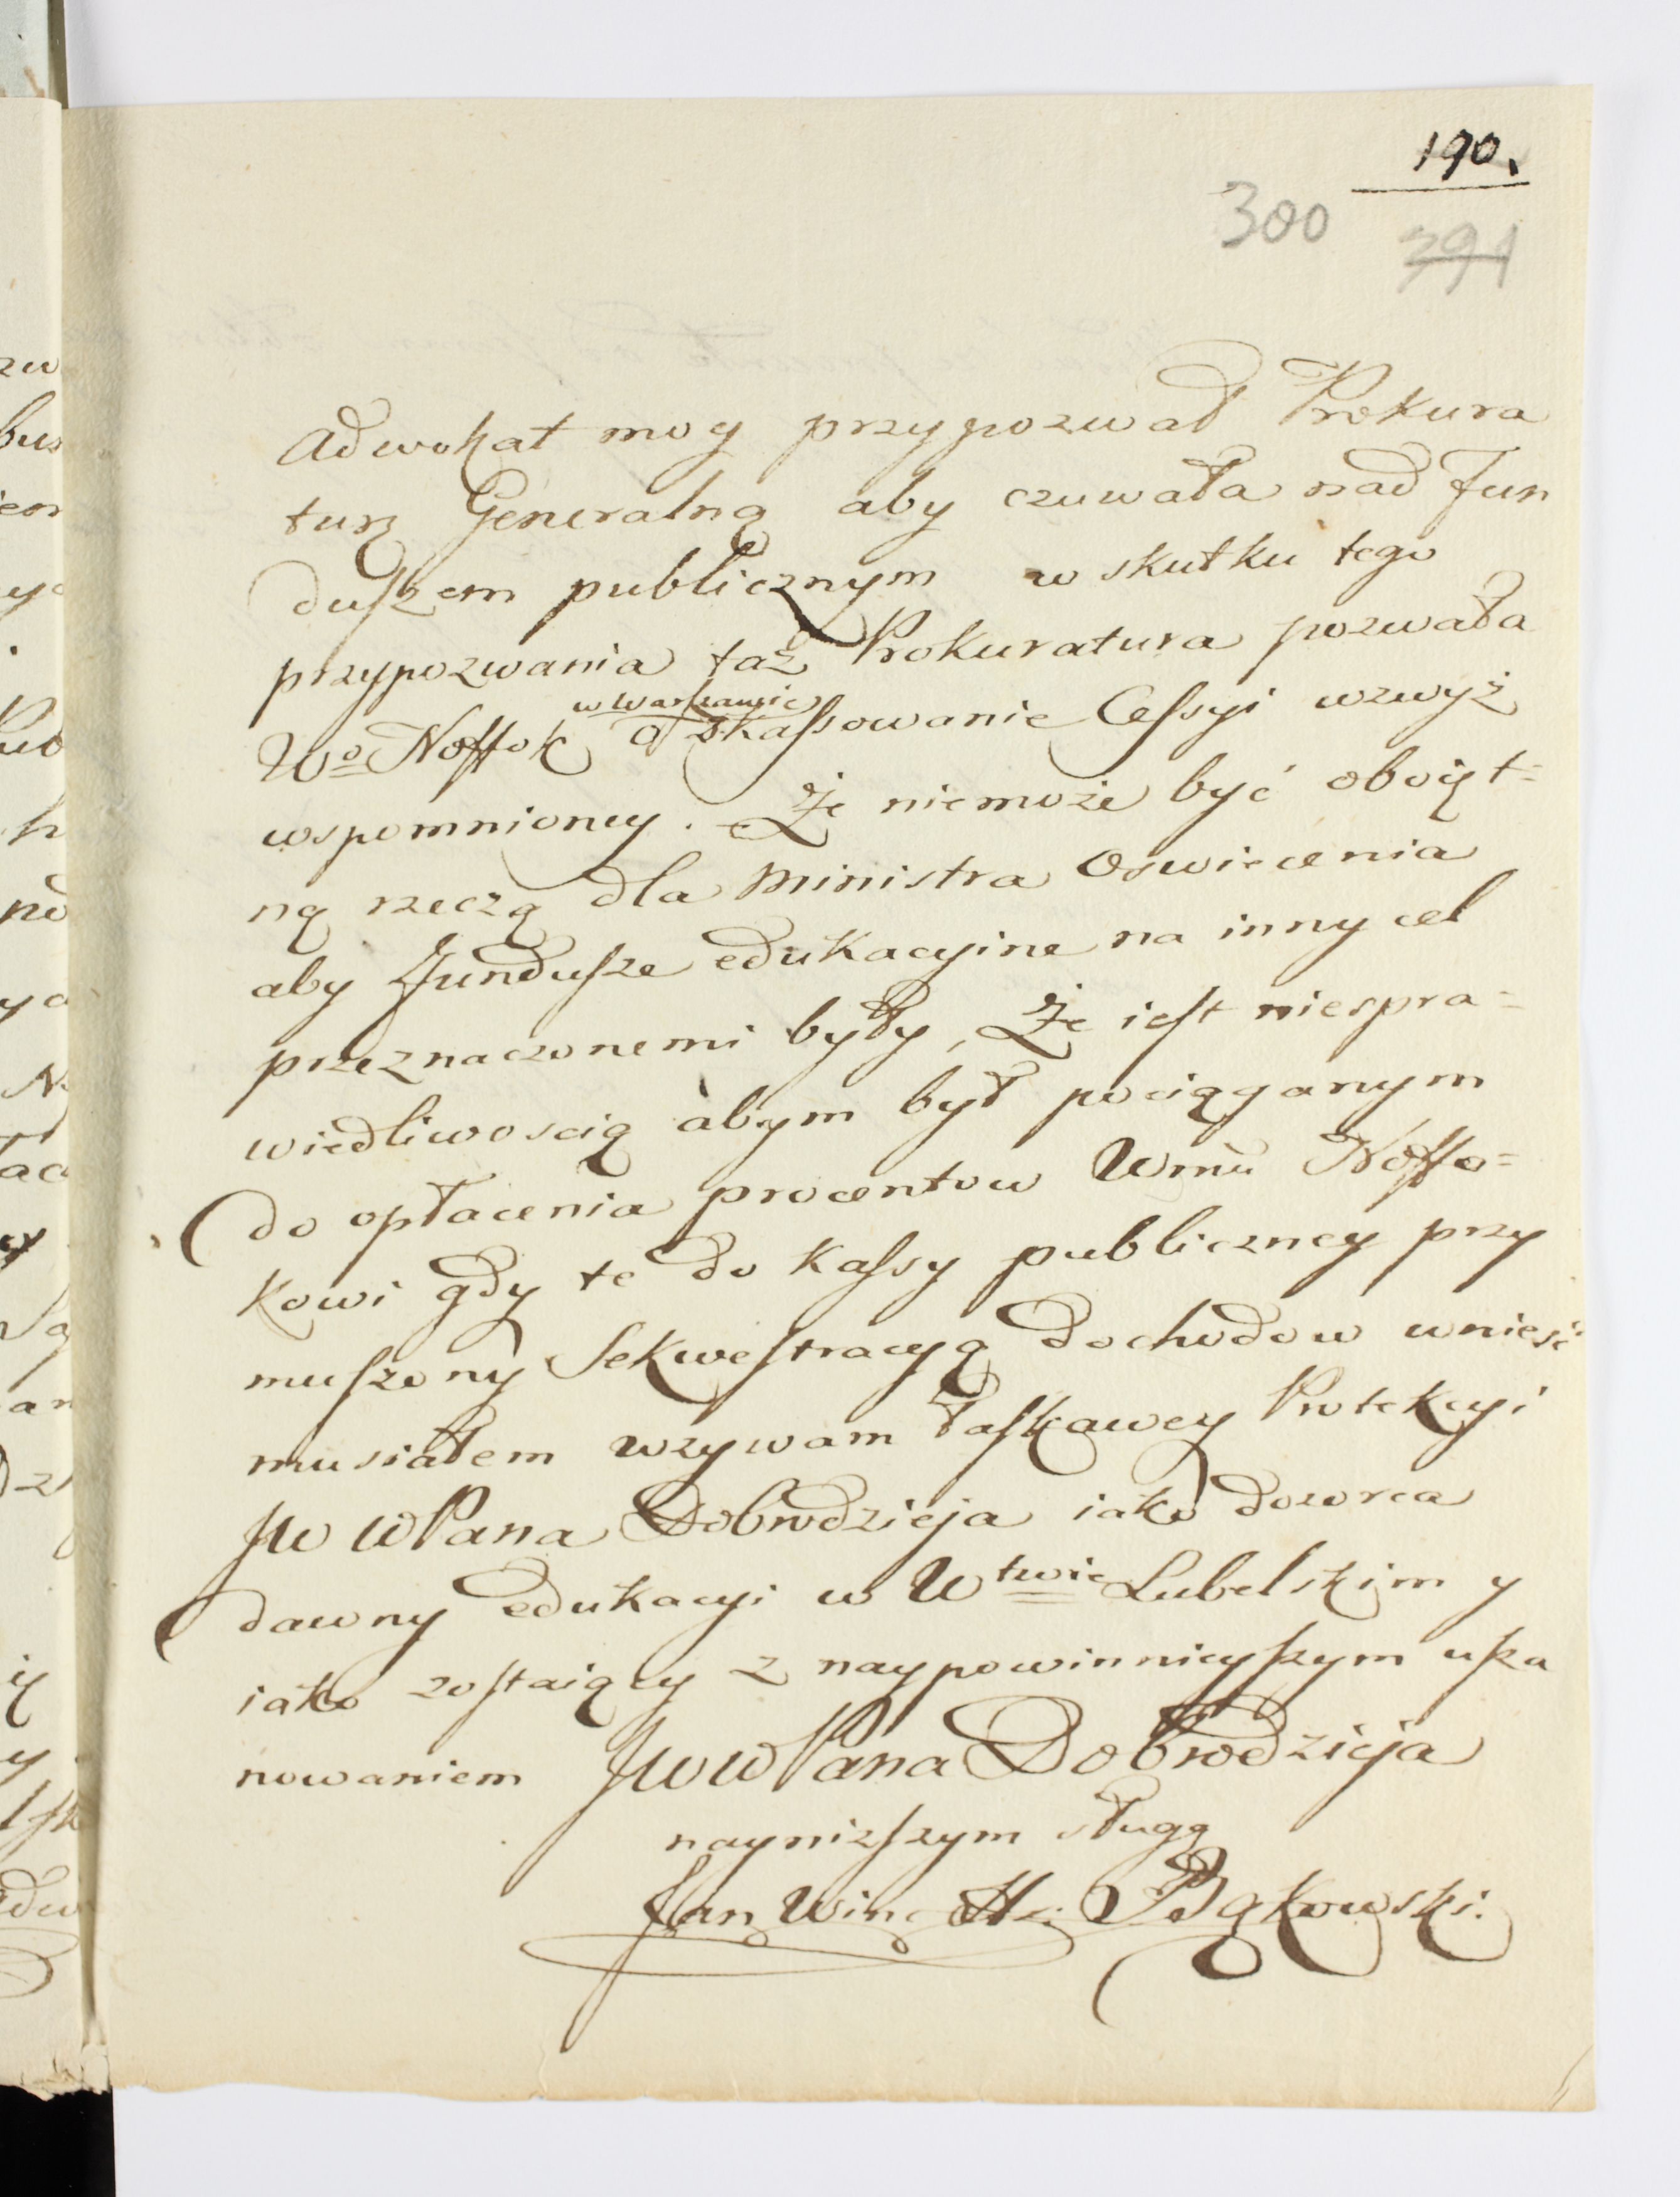 190.
300 391
Adwokat moy przypozwał Prokura
turę Generalną aby czuwała nad Fun
duszem publicznym w skutku tego
przypozwania taż Prokuratura pozwała
w Warszawie
Wo Noffok o skassowanie Cessyi wzwyż
wspomnioney. Że niemoże być oboięt=
ną rzeczą dla Ministra Oswiecenia
aby Fundusze edukacyine na inny cel
przeznaczonemi były, Że iest niespra=
wiedliwoscią abym był pociąganym
do opłacenia procentow Wmu Noffo=
kowi gdy te do Kassy publiczney przy
muszony Sekwestracyą dochodow wnieść
musiałem wzywam Łaskawey Protekcyi
JW WPana Dobrodzieja iako dozorca
dawny edukacyi w Wtwie Lubelskim y
iako zostaiący z naypowinnieyszym usza
nowaniem JWWPana Dobrodzieja
nayniższym sługą
Jan Winc Hr: Bąkowski.